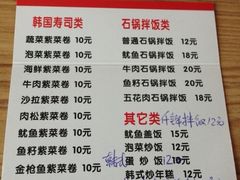 韩国寿司类
蔬菜紫菜卷 10元
泡菜紫菜卷 10元
海鲜紫菜卷 10元
牛肉紫菜卷 10元
沙拉紫菜卷 10元
肉松紫菜卷 10元
鱿鱼紫菜卷 10元
鱼籽紫菜卷 10元
金枪鱼紫菜卷 10元
石锅拌饭类
普通石锅拌饭 12元
鱿鱼石锅拌饭 18元
泡菜石锅拌饭
牛肉石锅拌饭 18元
鱼籽石锅拌饭 20元
五花肉石锅拌饭 18元
其它类
拌饭12元
鱿鱼盖饭 15元
泡菜炒饭 12元
蛋炒饭 12元
韩式炒年糕 12元